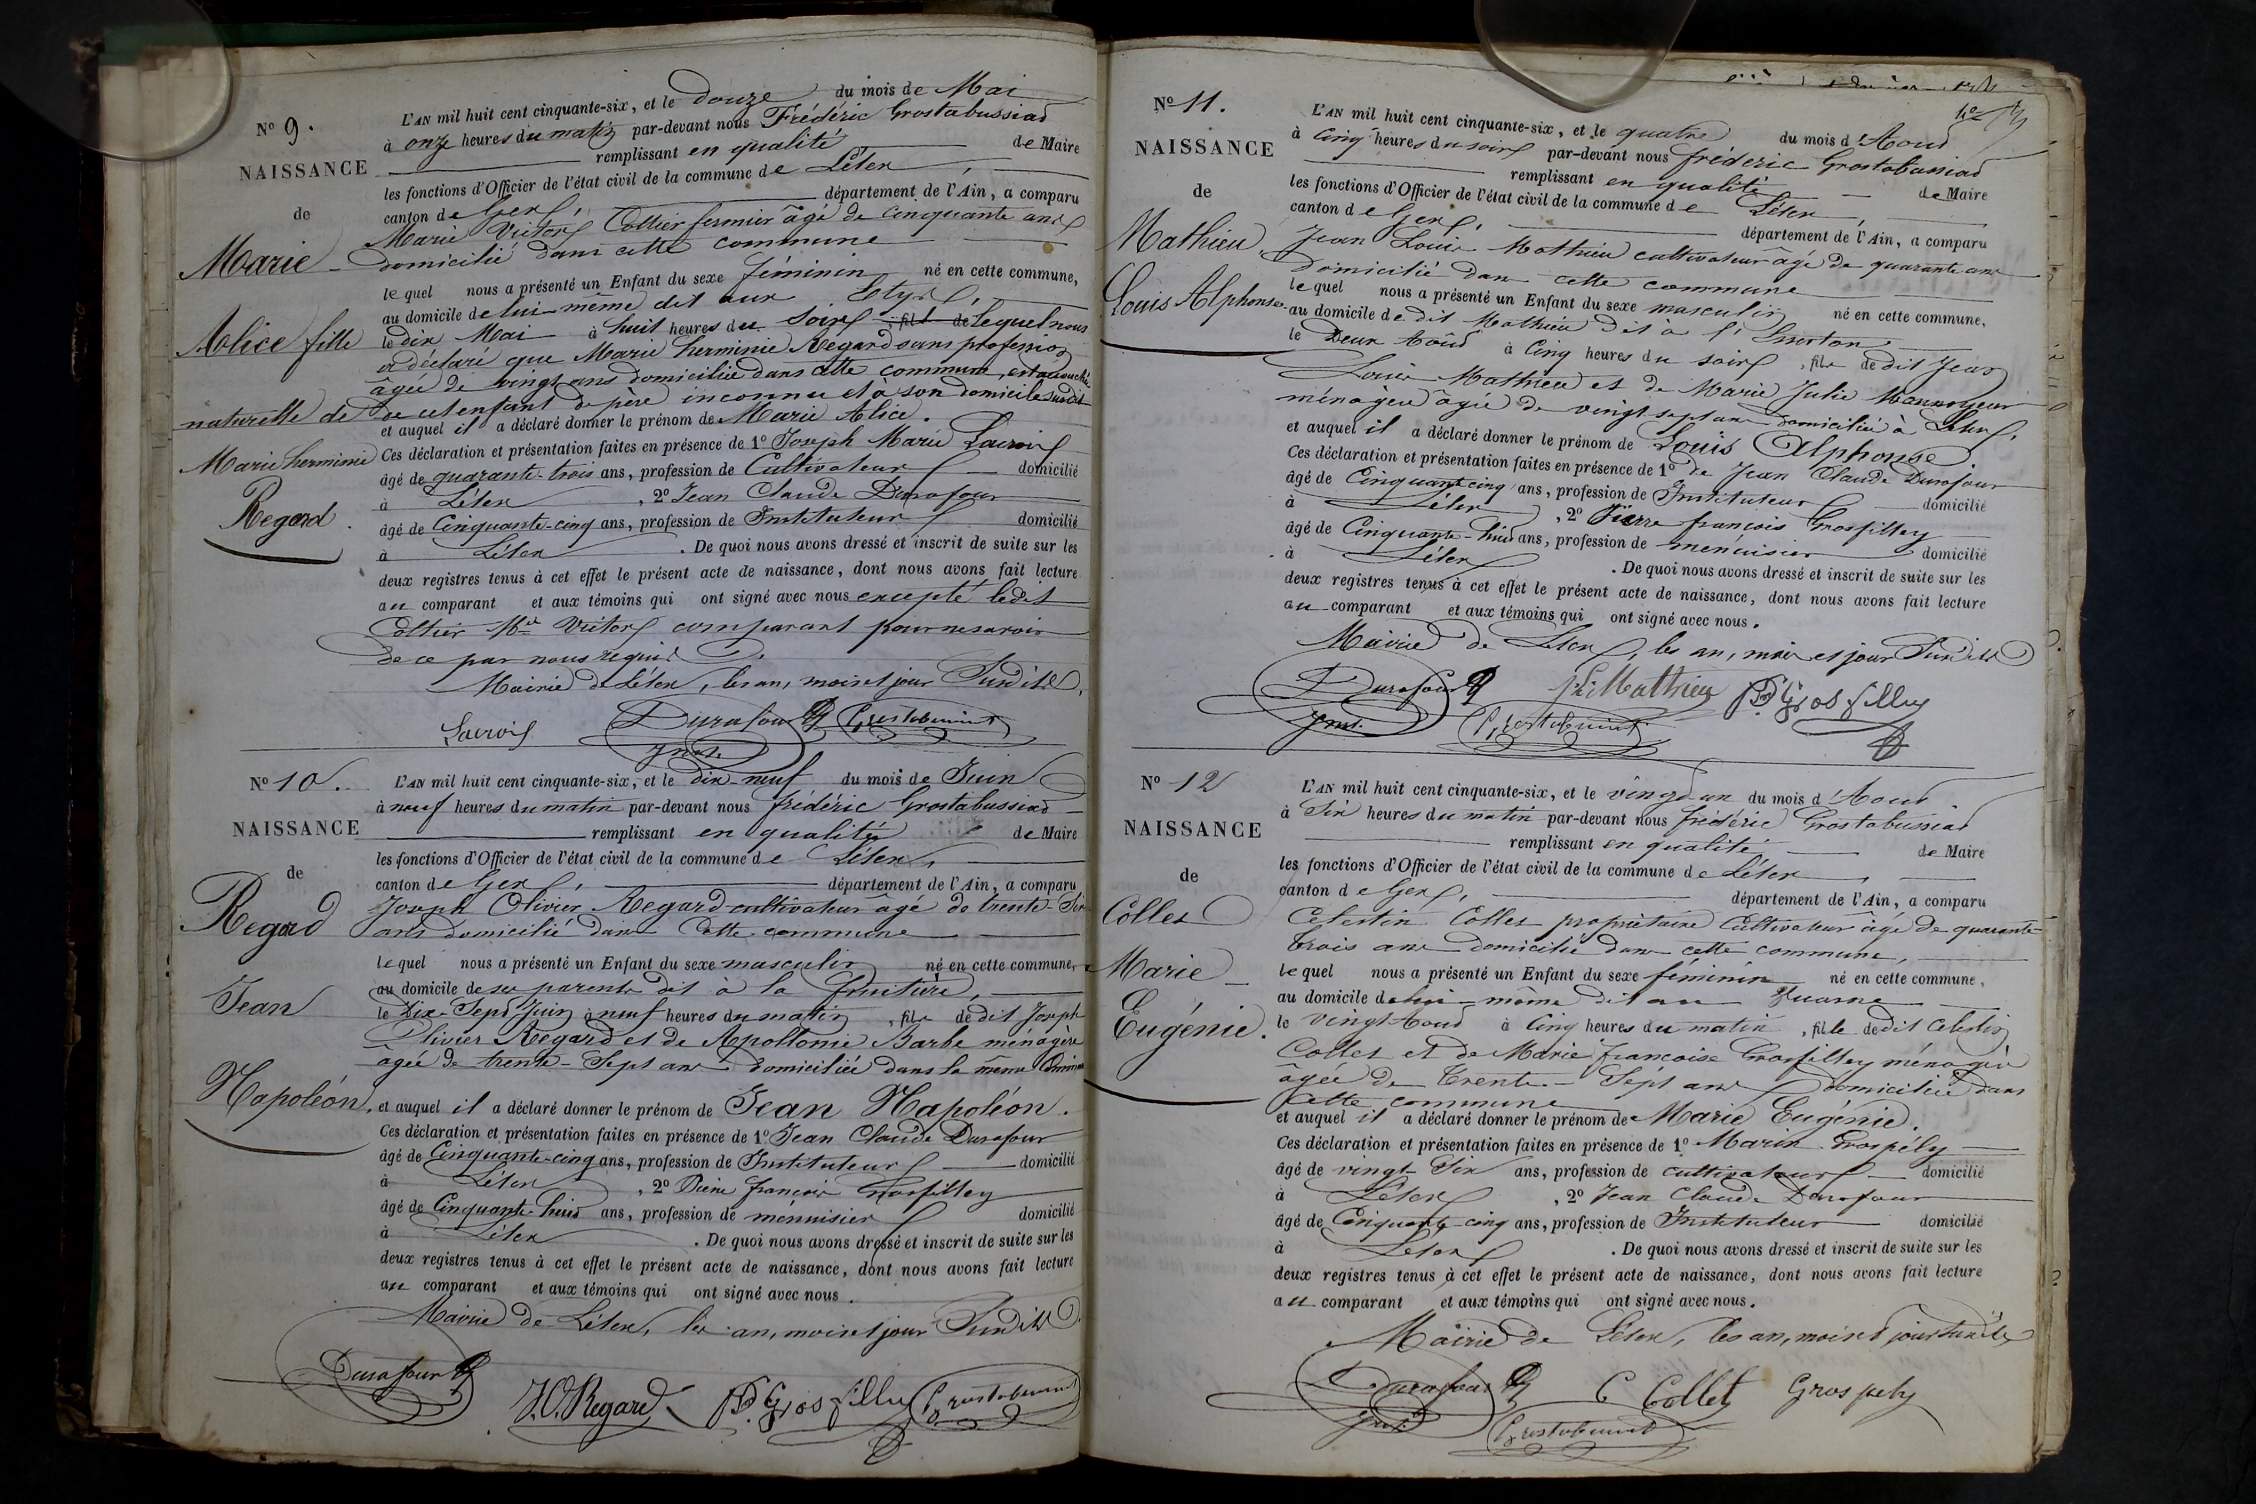 Nº 9.
NAISSANCE
de
Marie
Alice fille
naturelle de
Marie herminie
Regard.
L'AN mil huit cent cinquante-six, et le douze du mois de Mai
à onze heures du matin par-devant nous Frédéric Grostabussiad
remplissant en qualité de Maire
les fonctions d'Officier de l'état civil de la commune de Lélex,
canton de Gex, département de l'Ain, a comparu
Marie Victor Coltier fermier âgé de Cinquante ans
domicilié dans cette commune
lequel nous a présenté un Enfant du sexe féminin né en cette commune,
au domicile de lui-même dit aux
le dix Mai à huit heures du Soir, fil de lequel nous
a déclaré que Marie herminie Regard sans profession
âgée de vingt ans domiciliée dans cette commune, est accouchée
de cet enfant de père inconnu et à son domicile susdit
et auquel il a déclaré donner le prénom de Marie Alice.
Ces déclaration et présentation faites en présence de 1º Joseph Marie Lacroix
âgé de quarante-trois ans, profession de Cultivateur domicilié
à Lélex, 2º Jean Claude Durafour
âgé de Cinquante-cinq ans, profession de Instituteur domicilié
à Lélex. De quoi nous avons dressé et inscrit de suite sur les
deux registres tenus à cet effet le présent acte de naissance, dont nous avons fait lecture
au comparant et aux témoins qui ont signé avec nous excepté ledit
Coltier Mie Victor comparant pour ne savoir
de ce par nous requis.
Mairie de Lélex, les an, mois et jour Susdits.
Lacroix Durafour Grostabussiat
Inst.
Nº 10.
NAISSANCE
de
Regard
Jean
Napoléon.
L'AN mil huit cent cinquante-six, et le dix-neuf du mois de Juin
à neuf heures du matin par-devant nous frédéric Grostabussiad
remplissant en qualité de Maire
les fonctions d'Officier de l'état civil de la commune de Lélex,
canton de Gex, département de l'Ain, a comparu
Joseph Olivier Regard cultivateur âgé de trente-Six
ans domicilié dans Cette commune
lequel nous a présenté un Enfant du sexe masculin né en cette commune,
au domicile de ses parents dit à la fruitière,
le Dix-Sept Juin à neuf heures du matin, fils dedit Joseph
Olivier Regard et de Apollonie Barbe ménagère
âgée de trente-Sept ans domiciliée dans la même Commune
et auquel il a déclaré donner le prénom de Jean Napoléon.
Ces déclaration et présentation faites en présence de 1º Jean Claude Durafour
âgé de Cinquante-cinq ans, profession de Instituteur domicilié
à Lélex, 2º Pierre françois Grosfilley
âgé de Cinquante-huit ans, profession de menuisier domicilié
à Lélex. De quoi nous avons dressé et inscrit de suite sur les
deux registres tenus à cet effet le présent acte de naissance, dont nous avons fait lecture
au comparant et aux témoins qui ont signé avec nous.
Mairie de Lélex, les an, mois et jour Susdits
Durafour J.O. Regard Grosfilley Grostabussiat
Nº 11.
NAISSANCE
de
Mathieu
Louis Alphonse
L'AN mil huit cent cinquante-six, et le quatre du mois d'Aout
à Cinq heures du soir par-devant nous frédéric Grostabussiad
remplissant en qualité de Maire
les fonctions d'Officier de l'état civil de la commune de Lélex,
canton de Gex, département de l'Ain, a comparu
Jean Louis Mathieu cultivateur âgé de quarante ans
domicilié dans cette commune
lequel nous a présenté un Enfant du sexe masculin né en cette commune,
au domicile dedit Mathieu dit à
le Deux Août à Cinq heures du soir, fils dedit Jean
Louis Mathieu et de Marie Julie
ménagère âgée de vingt sept ans domiciliée à Lélex,
et auquel il a déclaré donner le prénom de Louis Alphonse
Ces déclaration et présentation faites en présence de 1º de Jean Claude Durafour
âgé de Cinquante cinq ans, profession de Instituteur domicilié
à Lélex, 2º Pierre françois Grosfilley
âgé de Cinquante-huit ans, profession de menuisier domicilié
à Lélex. De quoi nous avons dressé et inscrit de suite sur les
deux registres tenus à cet effet le présent acte de naissance, dont nous avons fait lecture
au comparant et aux témoins qui ont signé avec nous.
Mairie de Lélex, les an, mois et jour Susdits
Durafour J.L. Mathieu Grosfilley
Inst. Grostabussiat
Nº 12
NAISSANCE
de
Collet
Marie
Eugénie.
L'AN mil huit cent cinquante-six, et le vingt un du mois d'Aout
à Six heures du matin par-devant nous frédéric Grostabussiad
remplissant en qualité de Maire
les fonctions d'Officier de l'état civil de la commune de Lélex,
canton de Gex, département de l'Ain, a comparu
Celestin Collet propriétaire Cultivateur âgé de quarante-
trois ans domicilié dans cette commune,
lequel nous a présenté un Enfant du sexe féminin né en cette commune,
au domicile de lui-même dit au
le vingt Aout à Cinq heures du matin, fille dedit Celestin
Collet et de Marie françoise Grosfilley ménagère
âgée de Trente-Sept ans domiciliée dans
cette commune
et auquel il a déclaré donner le prénom de Marie Eugénie.
Ces déclaration et présentation faites en présence de 1º Marin Grospély
âgé de vingt Six ans, profession de cultivateur domicilié
à Lélex, 2º Jean Claude Durafour
âgé de Cinquante cinq ans, profession de Instituteur domicilié
à Lélex. De quoi nous avons dressé et inscrit de suite sur les
deux registres tenus à cet effet le présent acte de naissance, dont nous avons fait lecture
au comparant et aux témoins qui ont signé avec nous.
Mairie de Lélex, les an, mois et jour susdits
Durafour C Collet Grospely
Inst. Grostabussiat